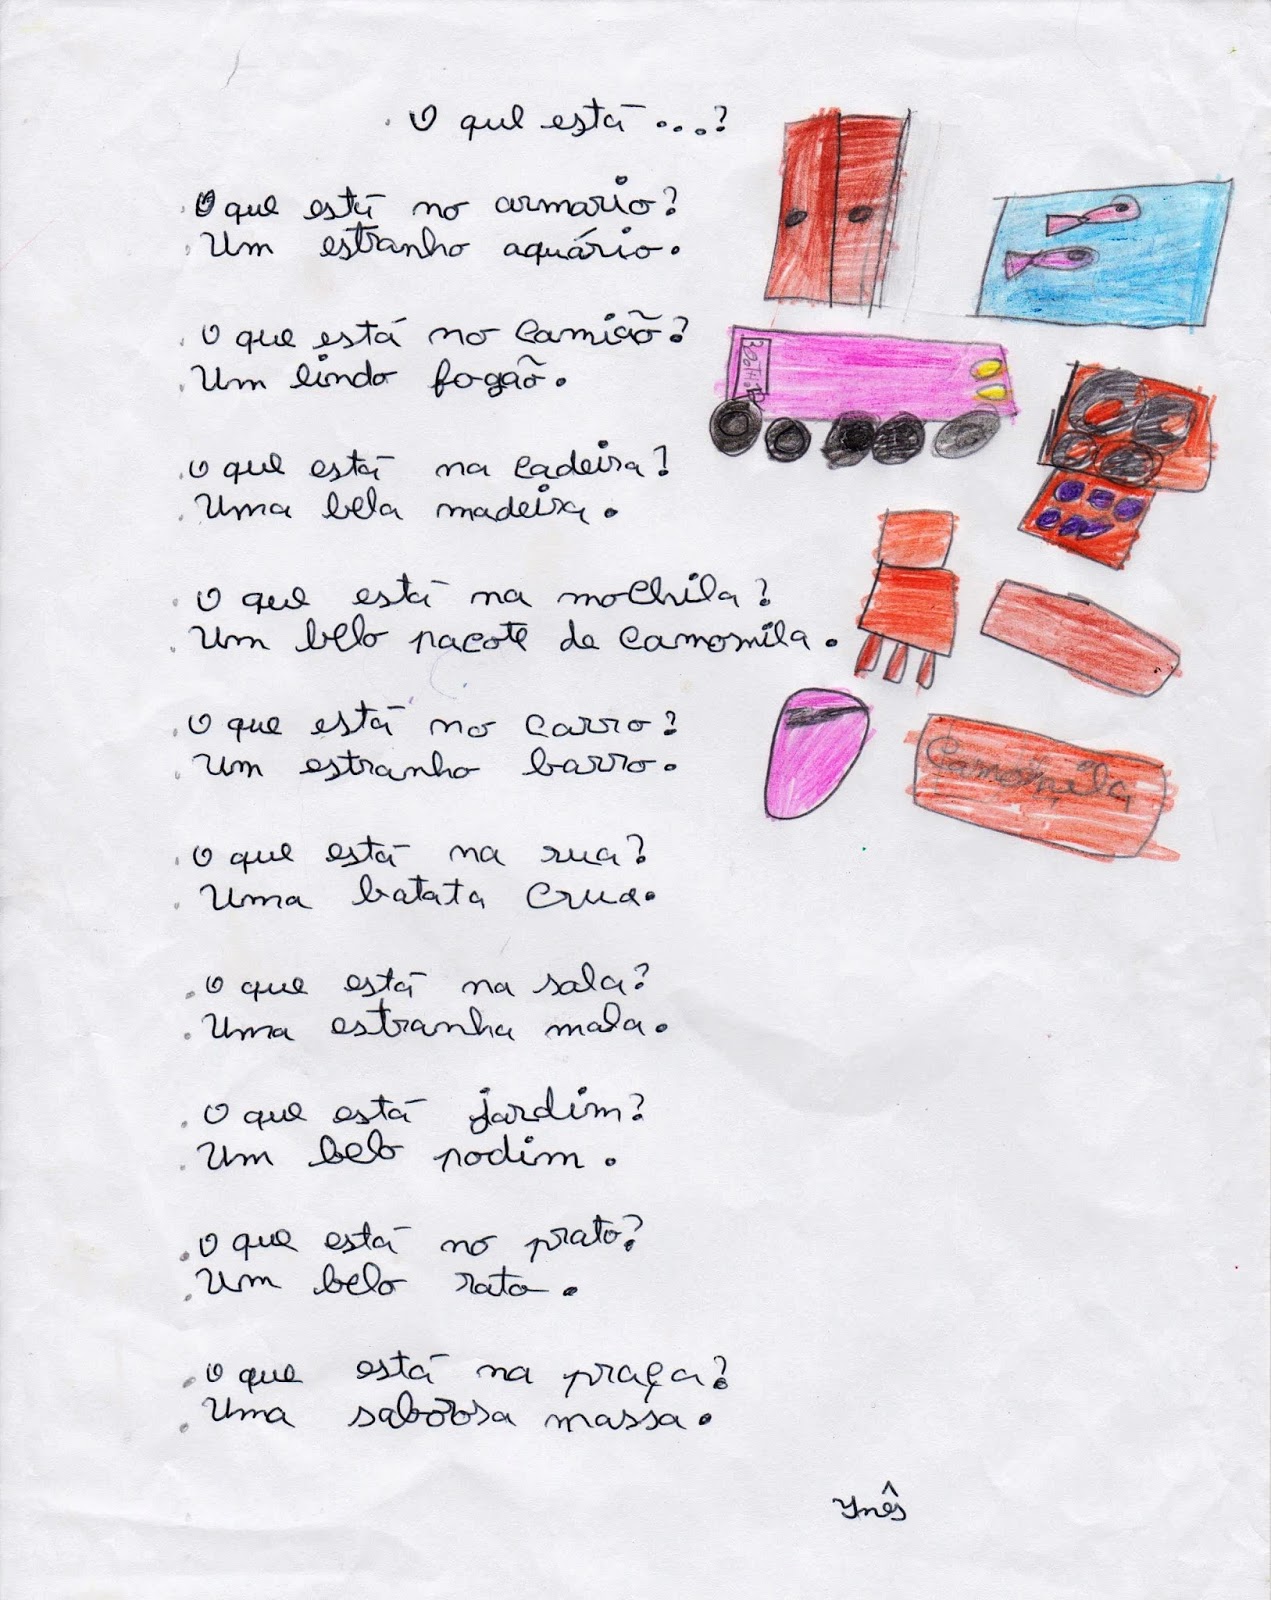 O que está ...?
O que está no armario?
Um estranho aquário.
O que está no camião?
Um lindo fogão.
O que está na cadeira?
Uma bela madeira.
O que está na mochila?
Um belo pacote de camomila.
O que está no carro?
Um estranho barro.
O que está na rua?
Uma batata crua.
O que está na sala?
Uma estranha mala.
O que está jardim?
Um belo podim.
O que está no prato?
Um belo rato.
O que está na praça?
Uma saborosa massa.
Camomila
Ynês